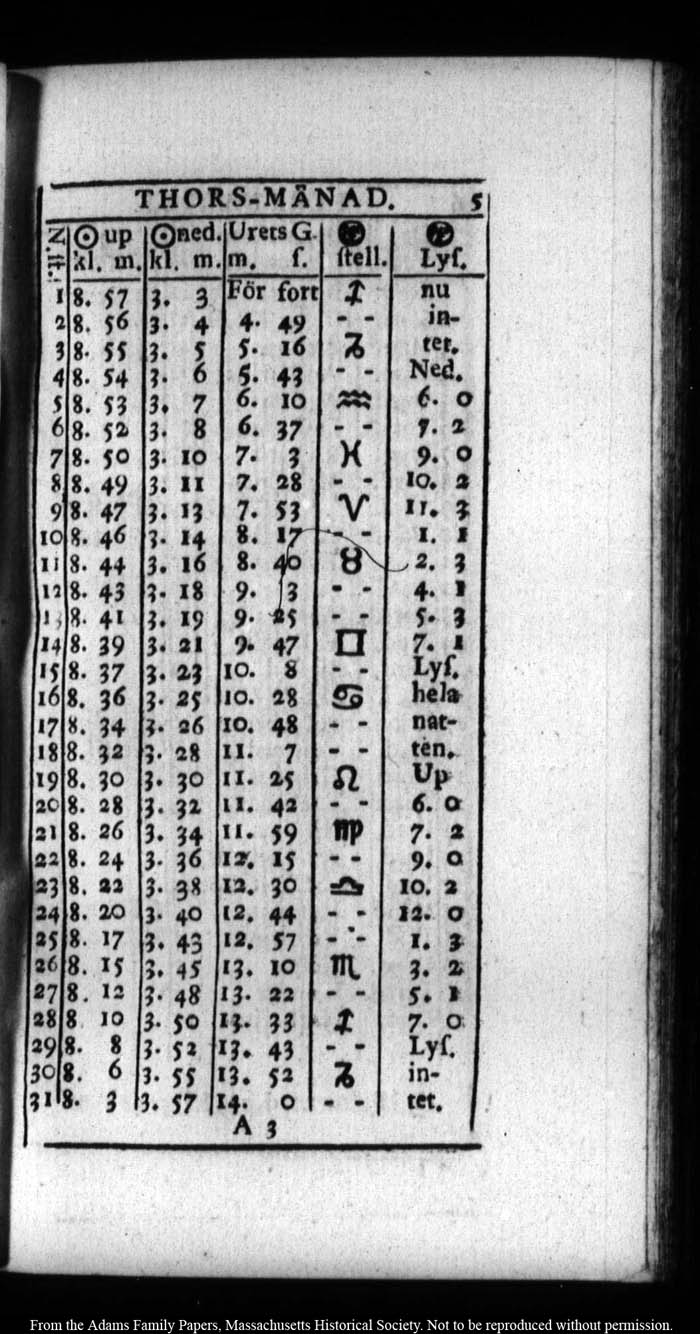 THORS-MÅNAD. 5
N. ☉ up ☉ned. Urets G. ☽ ☽
ſt. kl. m. kl. m. m. ſ. ſtell. Lyſ.
1 8. 57 3. 3 För fort ♐ nu
2 8. 56 3. 4 4. 49 - - in-
3 8. 55 3. 5 5. 16 ♑ tet.
4 8. 54 3. 6 5. 43 - - Ned.
5 8. 53 3. 7 6. 10 ♒ 6. 0
6 8. 52 3. 8 6. 37 - - 7. 2
7 8. 50 3. 10 7. 3 ♓ 9. 0
8 8. 49 3. 11 7. 28 - - 10. 2
9 8. 47 3. 13 7. 53 ♈ 11. 3
10 8. 46 3. 14 8. 17 - - 1. 1
11 8. 44 3. 16 8. 40 ♉ 2. 3
12 8. 43 3. 18 9. 3 - - 4. 1
13 8. 41 3. 19 9. 25 - - 5. 3
14 8. 39 3. 21 9. 47 ♊ 7. 1
15 8. 37 3. 23 10. 8 - - Lyſ.
16 8. 36 3. 25 10. 28 ♋ hela
17 8. 34 3. 26 10. 48 - - nat-
18 8. 32 3. 28 11. 7 - - ten.
19 8. 30 3. 30 11. 25 ♌ Up
20 8. 28 3. 32 11. 42 - - 6. 0
21 8. 26 3. 34 11. 59 ♍ 7. 2
22 8. 24 3. 36 12. 15 - - 9. 0
23 8. 22 3. 38 12. 30 ♎ 10. 2
24 8. 20 3. 40 12. 44 - - 12. 0
25 8. 17 3. 43 12. 57 - - 1. 3
26 8. 15 3. 45 13. 10 ♏ 3. 2
27 8. 12 3. 48 13. 22 - - 5. 1
28 8 10 3. 50 13. 33 ♐ 7. 0
29 8. 8 3. 52 13. 43 - - Lyſ.
30 8. 6 3. 55 13. 52 ♑ in-
31 8. 3 3. 57 14. 0 - - tet.
A 3
From the Adams Family Papers, Massachusetts Historical Society. Not to be reproduced without permission.